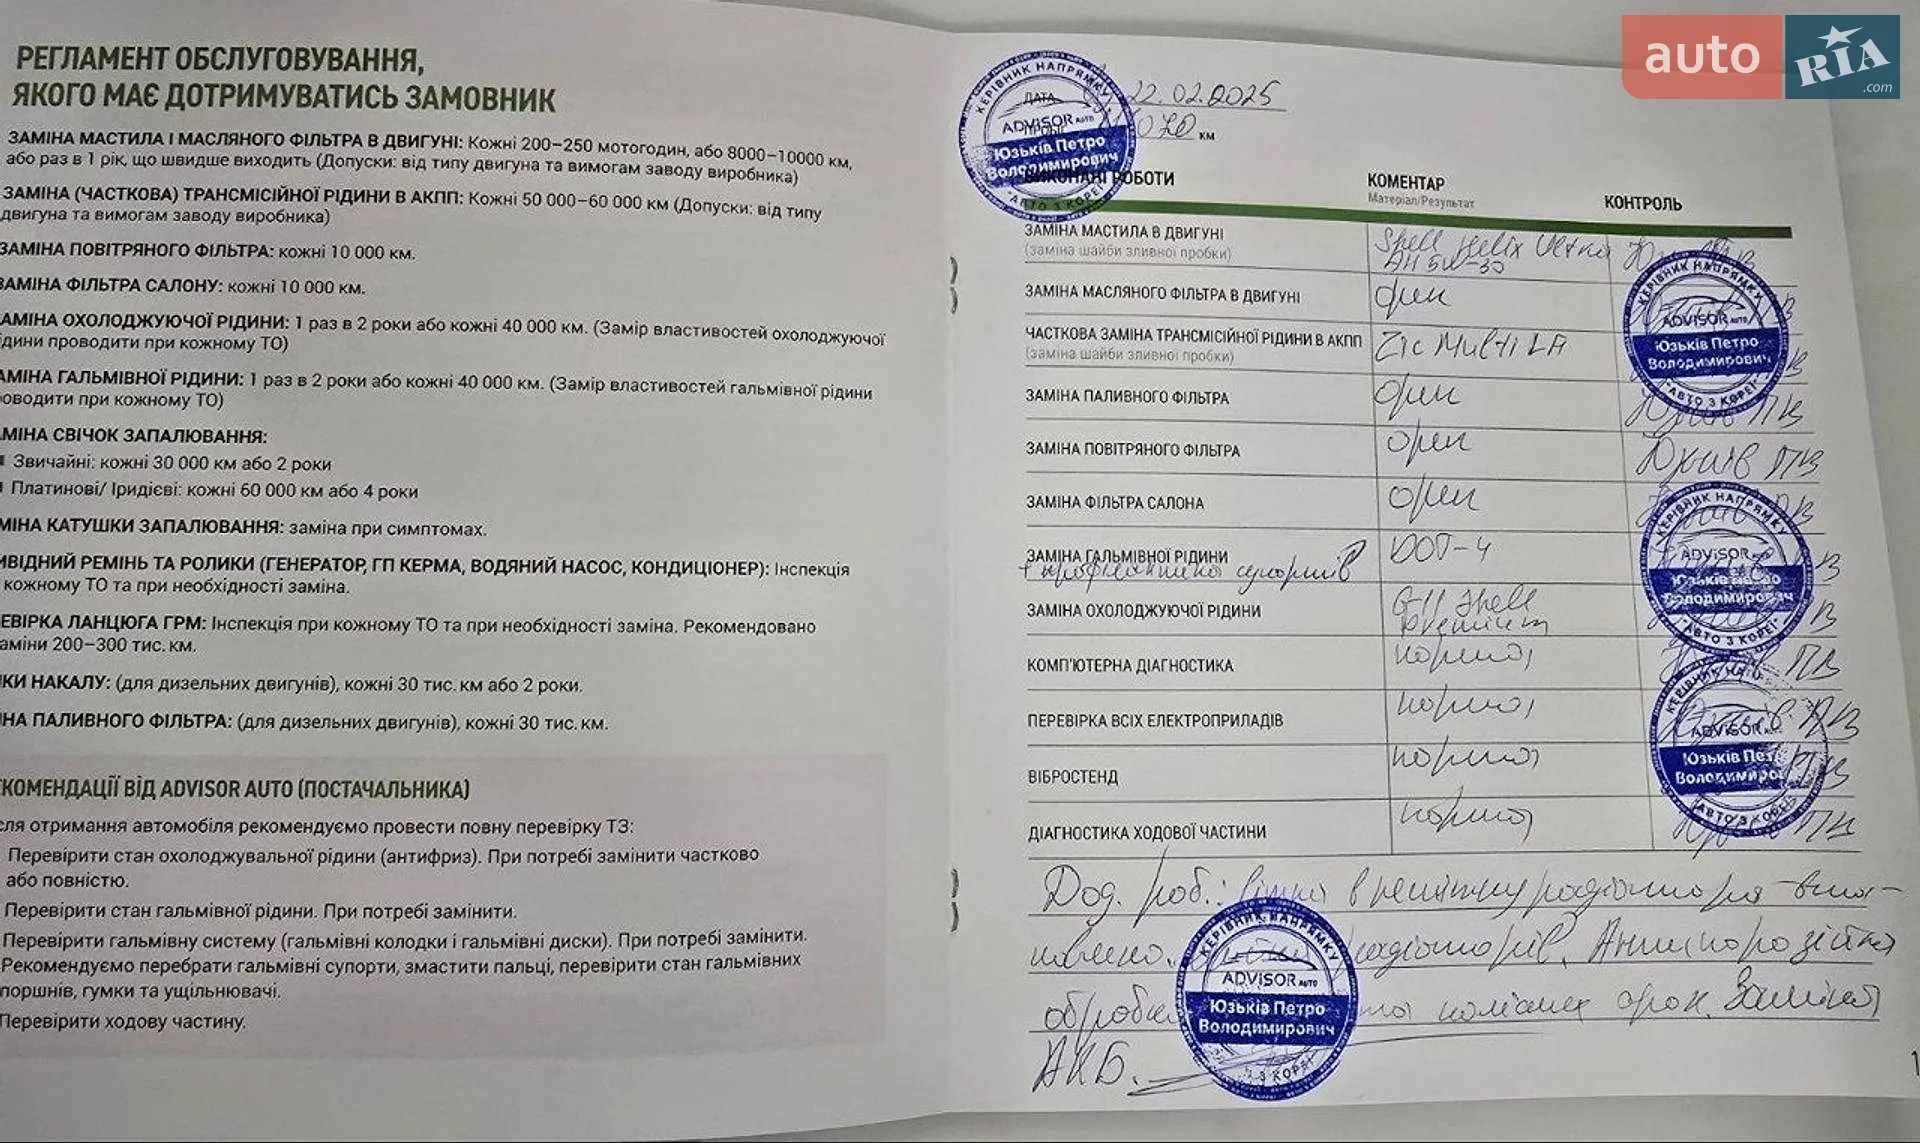 РЕГЛАМЕНТ ОБСЛУГОВУВАННЯ,
ЯКОГО МАЄ ДОТРИМУВАТИСЬ ЗАМОВНИК
ЗАМІНА МАСТИЛА І МАСЛЯНОГО ФІЛЬТРА В ДВИГУНІ: Кожні 200–250 мотогодин, або 8000–10000 км,
або раз в 1 рік, що швидше виходить (Допуски: від типу двигуна та вимогам заводу виробника)
ЗАМІНА (ЧАСТКОВА) ТРАНСМІСІЙНОЇ РІДИНИ В АКПП: Кожні 50 000–60 000 км (Допуски: від типу
двигуна та вимогам заводу виробника)
ЗАМІНА ПОВІТРЯНОГО ФІЛЬТРА: кожні 10 000 км.
ЗАМІНА ФІЛЬТРА САЛОНУ: кожні 10 000 км.
АМІНА ОХОЛОДЖУЮЧОЇ РІДИНИ: 1 раз в 2 роки або кожні 40 000 км. (Замір властивостей охолоджуючої
дини проводити при кожному ТО)
АМІНА ГАЛЬМІВНОЇ РІДИНИ: 1 раз в 2 роки або кожні 40 000 км. (Замір властивостей гальмівної рідини
оводити при кожному ТО)
МІНА СВІЧОК ЗАПАЛЮВАННЯ:
Звичайні: кожні 30 000 км або 2 роки
Платинові/ Іридієві: кожні 60 000 км або 4 роки
МІНА КАТУШКИ ЗАПАЛЮВАННЯ: заміна при симптомах.
ИВІДНИЙ РЕМІНЬ ТА РОЛИКИ (ГЕНЕРАТОР, ГП КЕРМА, ВОДЯНИЙ НАСОС, КОНДИЦІОНЕР): Інспекція
кожному ТО та при необхідності заміна.
ЕВІРКА ЛАНЦЮГА ГРМ: Інспекція при кожному ТО та при необхідності заміна. Рекомендовано
аміни 200–300 тис. км.
КИ НАКАЛУ: (для дизельних двигунів), кожні 30 тис. км або 2 роки.
НА ПАЛИВНОГО ФІЛЬТРА: (для дизельних двигунів), кожні 30 тис. км.
КОМЕНДАЦІЇ ВІД ADVISOR AUTO (ПОСТАЧАЛЬНИКА)
сля отримання автомобіля рекомендуємо провести повну перевірку ТЗ:
Перевірити стан охолоджувальної рідини (антифриз). При потребі замінити частково
або повністю.
Перевірити стан гальмівної рідини. При потребі замінити.
Перевірити гальмівну систему (гальмівні колодки і гальмівні диски). При потребі замінити.
Рекомендуємо перебрати гальмівні супорти, змастити пальці, перевірити стан гальмівних
поршнів, гумки та ущільнювачі.
Перевірити ходову частину.
auto RIA .com
ДАТА 22.02.2025
070 км
КЕРІВНИК НАПРЯМКУ
ADVISOR AUTO
Юзьків Петро
Володимирович
"АВТО З КОРЕЇ"
ВИКОНАНІ РОБОТИ КОМЕНТАР КОНТРОЛЬ
Матеріал/Результат
ЗАМІНА МАСТИЛА В ДВИГУНІ Shell Helix Ultra
(заміна шайби зливної пробки) AH 5W-30
ЗАМІНА МАСЛЯНОГО ФІЛЬТРА В ДВИГУНІ орен
ЧАСТКОВА ЗАМІНА ТРАНСМІСІЙНОЇ РІДИНИ В АКПП Zic Multi LA
(заміна шайби зливної пробки)
КЕРІВНИК НАПРЯМКУ
ADVISOR AUTO
Юзьків Петро
Володимирович
"АВТО З КОРЕЇ"
ЗАМІНА ПАЛИВНОГО ФІЛЬТРА орен Юзьків ПВ
ЗАМІНА ПОВІТРЯНОГО ФІЛЬТРА орен Юзьків ПВ
ЗАМІНА ФІЛЬТРА САЛОНА орен
ЗАМІНА ГАЛЬМІВНОЇ РІДИНИ DOT-4
+ профілактика супортів
КЕРІВНИК НАПРЯМКУ
ADVISOR AUTO
Юзьків Петро
Володимирович
"АВТО З КОРЕЇ"
ЗАМІНА ОХОЛОДЖУЮЧОЇ РІДИНИ G-11 Shell
Premium
КОМП'ЮТЕРНА ДІАГНОСТИКА норма
ПЕРЕВІРКА ВСІХ ЕЛЕКТРОПРИЛАДІВ норма
ВІБРОСТЕНД норма
КЕРІВНИК НАПРЯМКУ
ADVISOR
Юзьків Петро
Володимирович
"АВТО З КОРЕЇ"
ДІАГНОСТИКА ХОДОВОЇ ЧАСТИНИ норма
Дод. роб.: сітка в решітку радіатора вста-
новлено. радіаторів. Антикорозійна
обробка Заміна
АКБ.
КЕРІВНИК НАПРЯМКУ
ADVISOR AUTO
Юзьків Петро
Володимирович
З КОРЕЇ"
1